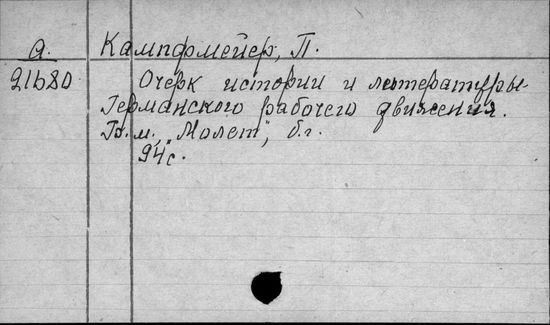 а. Кампфмейер, П.
21680 Очерк истории и литературы
Германского рабочего движения.
Б.м., „Молот“, б.г.
94с.